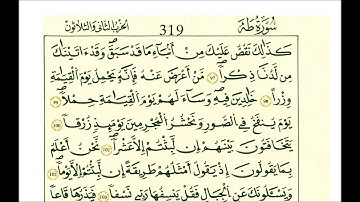 سورة طه 319 الحزب الثاني والثلاثون
كَذَٰلِكَ نَقُصُّ عَلَيْكَ مِنْ أَنۢبَآءِ مَا قَدْ سَبَقَ وَقَدَ اٰتَيْنَٰكَ
مِن لَّدُنَّا ذِكْراً مَّنَ اَعْرَضَ عَنْهُ فَإِنَّهُۥ يَحْمِلُ يَوْمَ ٱلْقِيَٰمَةِ
وِزْراً خَٰلِدِينَ فِيهِ وَسَآءَ لَهُمْ يَوْمَ ٱلْقِيَٰمَةِ حِمْلاً
يَوْمَ يُنفَخُ فِى ٱلصُّورِ وَنَحْشُرُ ٱلْمُجْرِمِينَ يَوْمَئِذٍ زُرْقاً
يَتَخَٰفَتُونَ بَيْنَهُمُۥٓ إِن لَّبِثْتُمُۥٓ إِلَّا عَشْراً نَّحْنُ أَعْلَمُ
بِمَا يَقُولُونَ إِذْ يَقُولُ أَمْثَلُهُمْ طَرِيقَةً اِن لَّبِثْتُمُۥٓ إِلَّا يَوْماً
وَيَسْـَٔلُونَكَ عَنِ ٱلْجِبَالِ فَقُلْ يَنسِفُهَا رَبِّى نَسْفاً فَيَذَرُهَا قَاعاً